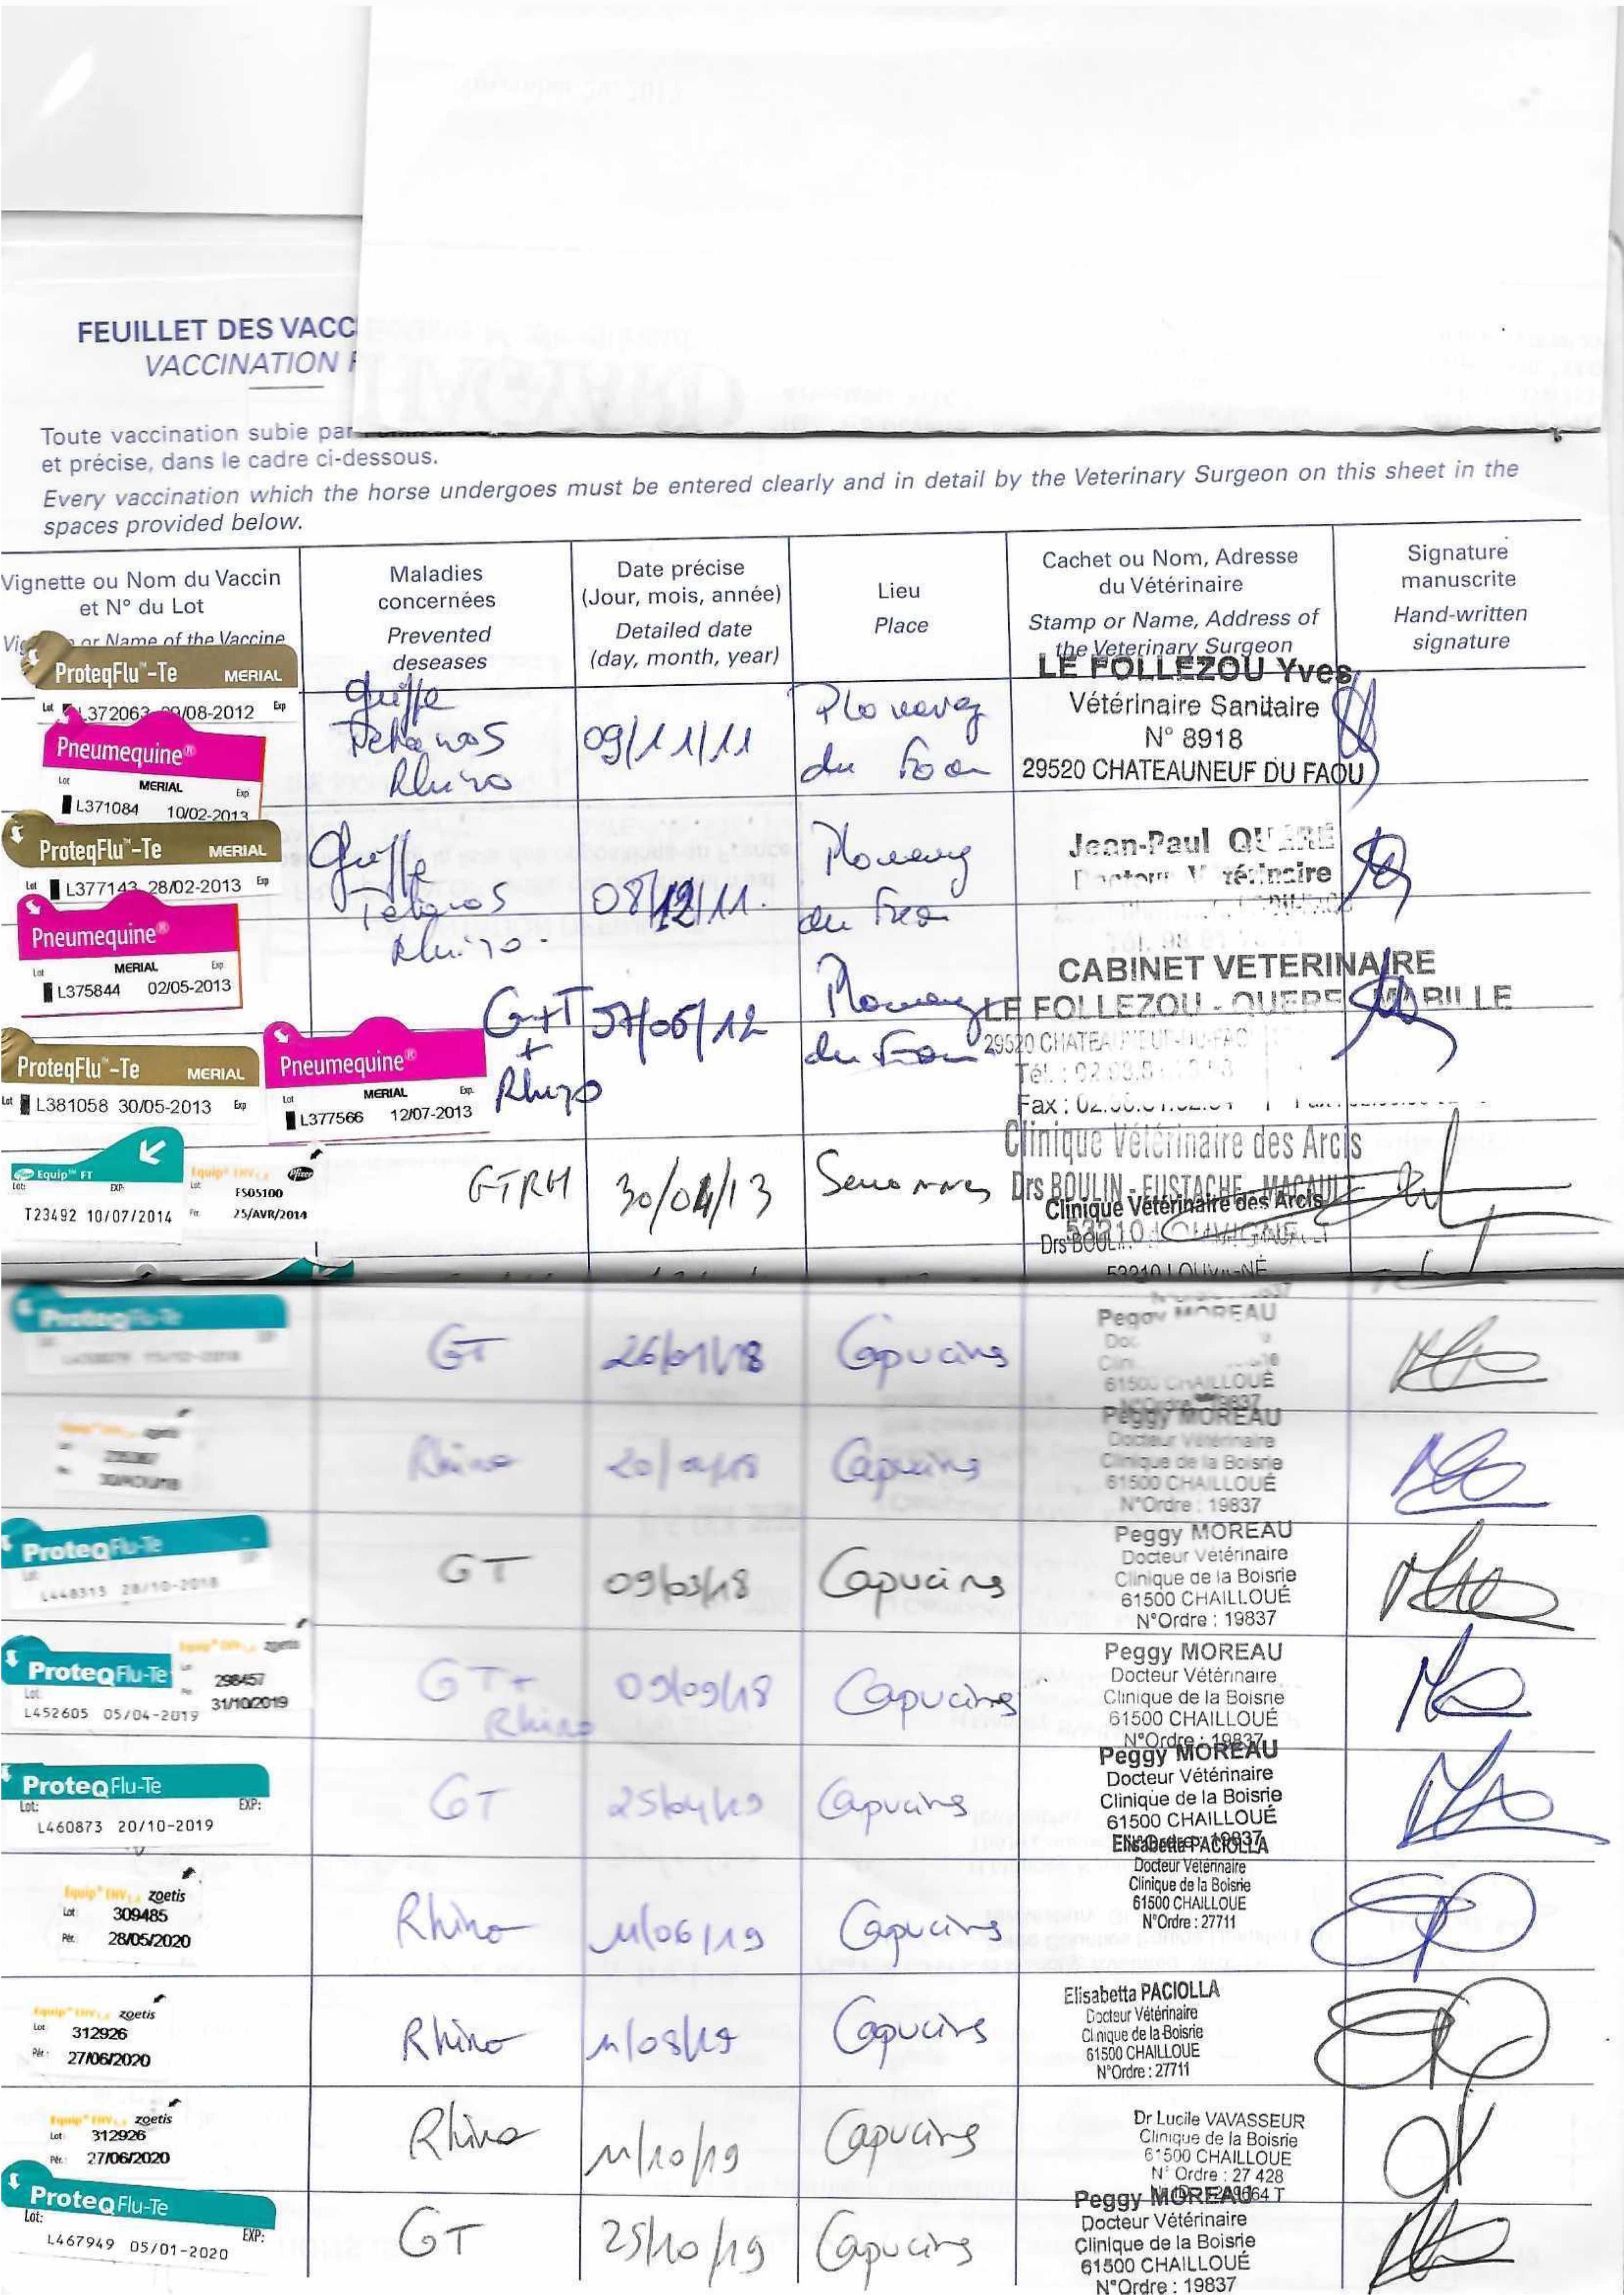 FEUILLET DES VACC
VACCINATION
Toute vaccination subie par
et précise, dans le cadre ci-dessous.
Every vaccination which the horse undergoes must be entered clearly and in detail by the Veterinary Surgeon on this sheet in the
spaces provided below.
Vignette ou Nom du Vaccin
et N° du Lot
or Name of the Vaccine
Maladies
concernées
Prevented
deseases
Date précise
(Jour, mois, année)
Detailed date
(day, month, year)
Lieu
Place
Cachet ou Nom, Adresse
du Vétérinaire
Stamp or Name, Address of
the Veterinary Surgeon
Signature
manuscrite
Hand-written
signature
ProteqFlu™-Te MERIAL
Lot L372063 09/08-2012 Exp
Pneumequine®
Lot MERIAL Exp
L371084 10/02-2013
Grippe
Tetanos
Rhino
09/11/11
Plonevez
du Faou
LE FOLLEZOU Yves
Vétérinaire Sanitaire
N° 8918
29520 CHATEAUNEUF DU FAOU
ProteqFlu™-Te MERIAL
Lot L377143 28/02-2013 Exp
Pneumequine®
Lot MERIAL Exp
L375844 02/05-2013
Grippe
Tetanos
Rhino
08/12/11
Plonevez
du Faou
Jean-Paul
ProteqFlu™-Te MERIAL
Lot L381058 30/05-2013 Exp
Pneumequine®
Lot MERIAL Exp.
L377566 12/07-2013
G+T
+
Rhino
Plonevez
du Faou
CABINET VETERINAIRE
LE FOLLEZOU - QUERE - MARILLE
29520
Tél. :
Fax :
Equip™ FT
Lot: EXP:
T23492 10/07/2014
Equip® EHV1,4 Pfizer
Lot FS05100
Per. 25/AVR/2014
GTRH
30/04/13
Senonnes
Clinique Vétérinaire des Arcis
Drs BOULIN - EUSTACHE - MACAULT
53210 LOUVIGNE
Clinique Vétérinaire des Arcis
Drs
53210 LOUVIGNÉ
ProteqFlu-Te
GT
26/01/18
Capucins
Peggy MOREAU
61500 CHAILLOUÉ
zoetis
Rhino
Capucins
Peggy MOREAU
Docteur Vétérinaire
Clinique de la Boisrie
61500 CHAILLOUÉ
N°Ordre : 19837
ProteqFlu-Te
L448315 28/10-2018
GT
09/03/18
Capucins
Peggy MOREAU
Docteur Vétérinaire
Clinique de la Boisrie
61500 CHAILLOUÉ
N°Ordre : 19837
ProteqFlu-Te
Lot:
L452605 05/04-2019
zoetis
298457
31/10/2019
GT+
Rhino
09/09/18
Capucins
Peggy MOREAU
Docteur Vétérinaire
Clinique de la Boisrie
61500 CHAILLOUÉ
N°Ordre : 19837
ProteqFlu-Te
Lot: EXP:
L460873 20/10-2019
GT
25/04/19
Capucins
Peggy MOREAU
Docteur Vétérinaire
Clinique de la Boisrie
61500 CHAILLOUÉ
N°Ordre : 19837
Equip® EHV1,4 zoetis
Lot 309485
Pér. 28/05/2020
Rhino
11/06/19
Capucins
Elisabetta PACIOLLA
Docteur Vétérinaire
Clinique de la Boisrie
61500 CHAILLOUE
N°Ordre : 27711
Equip® EHV1,4 zoetis
Lot 312926
Pér. 27/06/2020
Rhino
11/08/19
Capucins
Elisabetta PACIOLLA
Docteur Vétérinaire
Clinique de la Boisrie
61500 CHAILLOUE
N°Ordre : 27711
Equip® EHV1,4 zoetis
Lot 312926
Pér. 27/06/2020
Rhino
11/10/19
Capucins
Dr Lucile VAVASSEUR
Clinique de la Boisrie
61500 CHAILLOUE
N° Ordre : 27 428
ProteqFlu-Te
Lot: EXP:
L467949 05/01-2020
GT
25/10/19
Capucins
Peggy MOREAU
Docteur Vétérinaire
Clinique de la Boisrie
61500 CHAILLOUÉ
N°Ordre : 19837